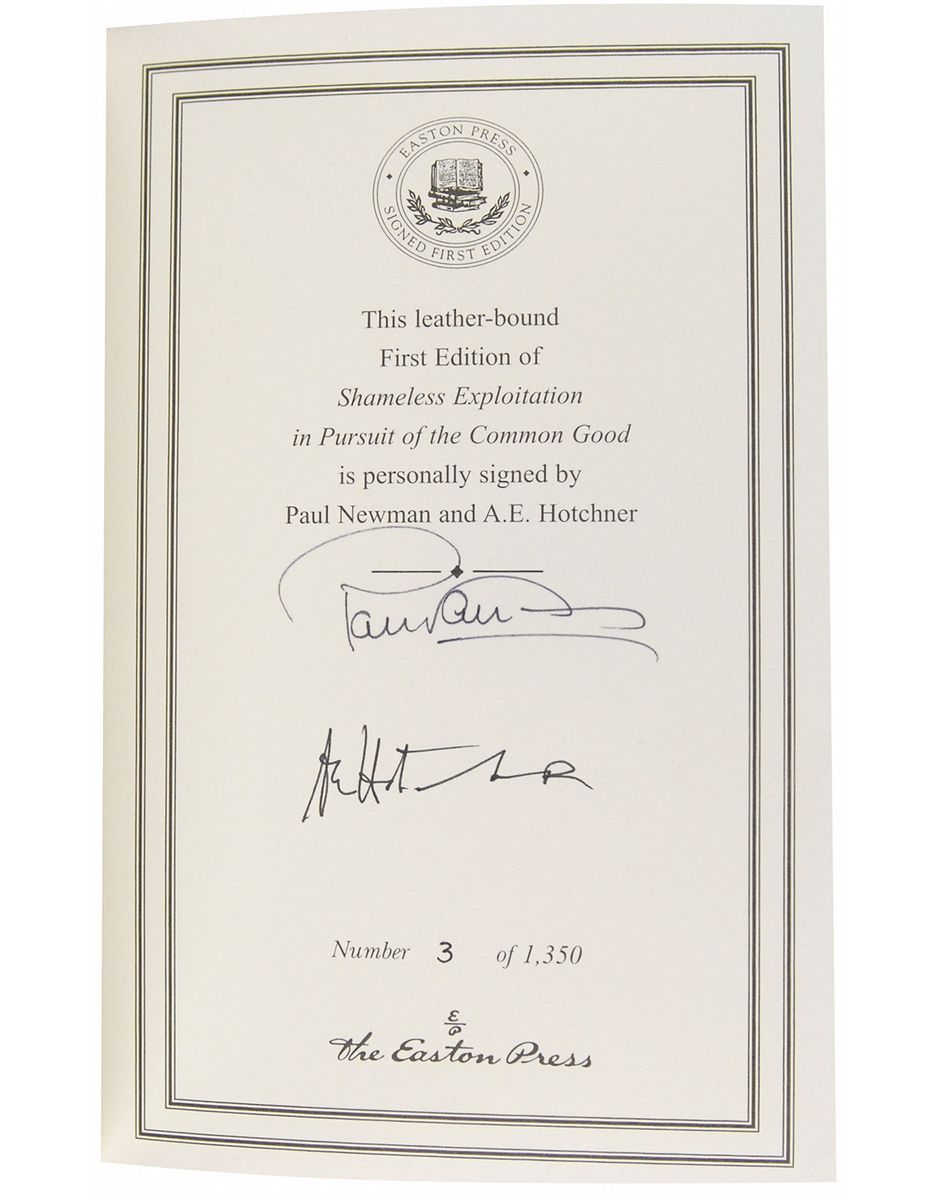 EASTON PRESS
SIGNED FIRST EDITION
This leather-bound
First Edition of
Shameless Exploitation
in Pursuit of the Common Good
is personally signed by
Paul Newman and A.E. Hotchner
AE Hotchner
Number 3 of 1,350
E
P
The Easton Press